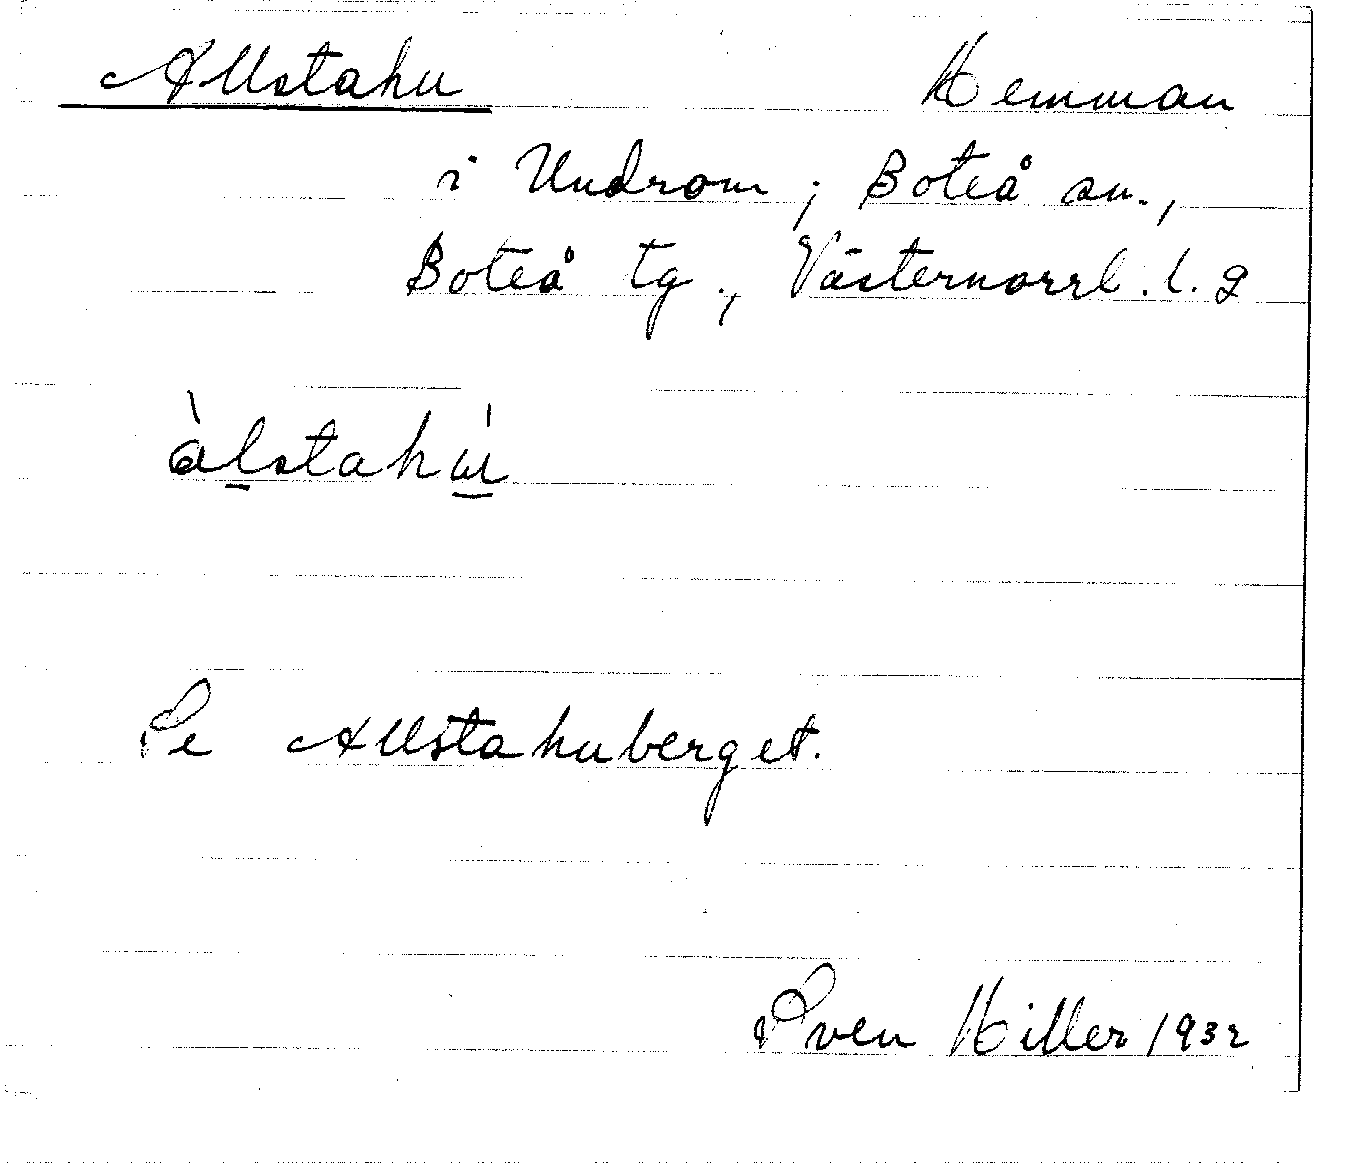 Allstahu Hemman
i Undrom; Boteå sn.,
Boteå tg., Västernorrl. l. 9
àlstahú
Se Allstahuberget.
Sven Hiller 1932